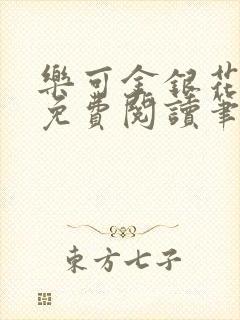 樂可金銀花
免費閱讀筆
東方七子